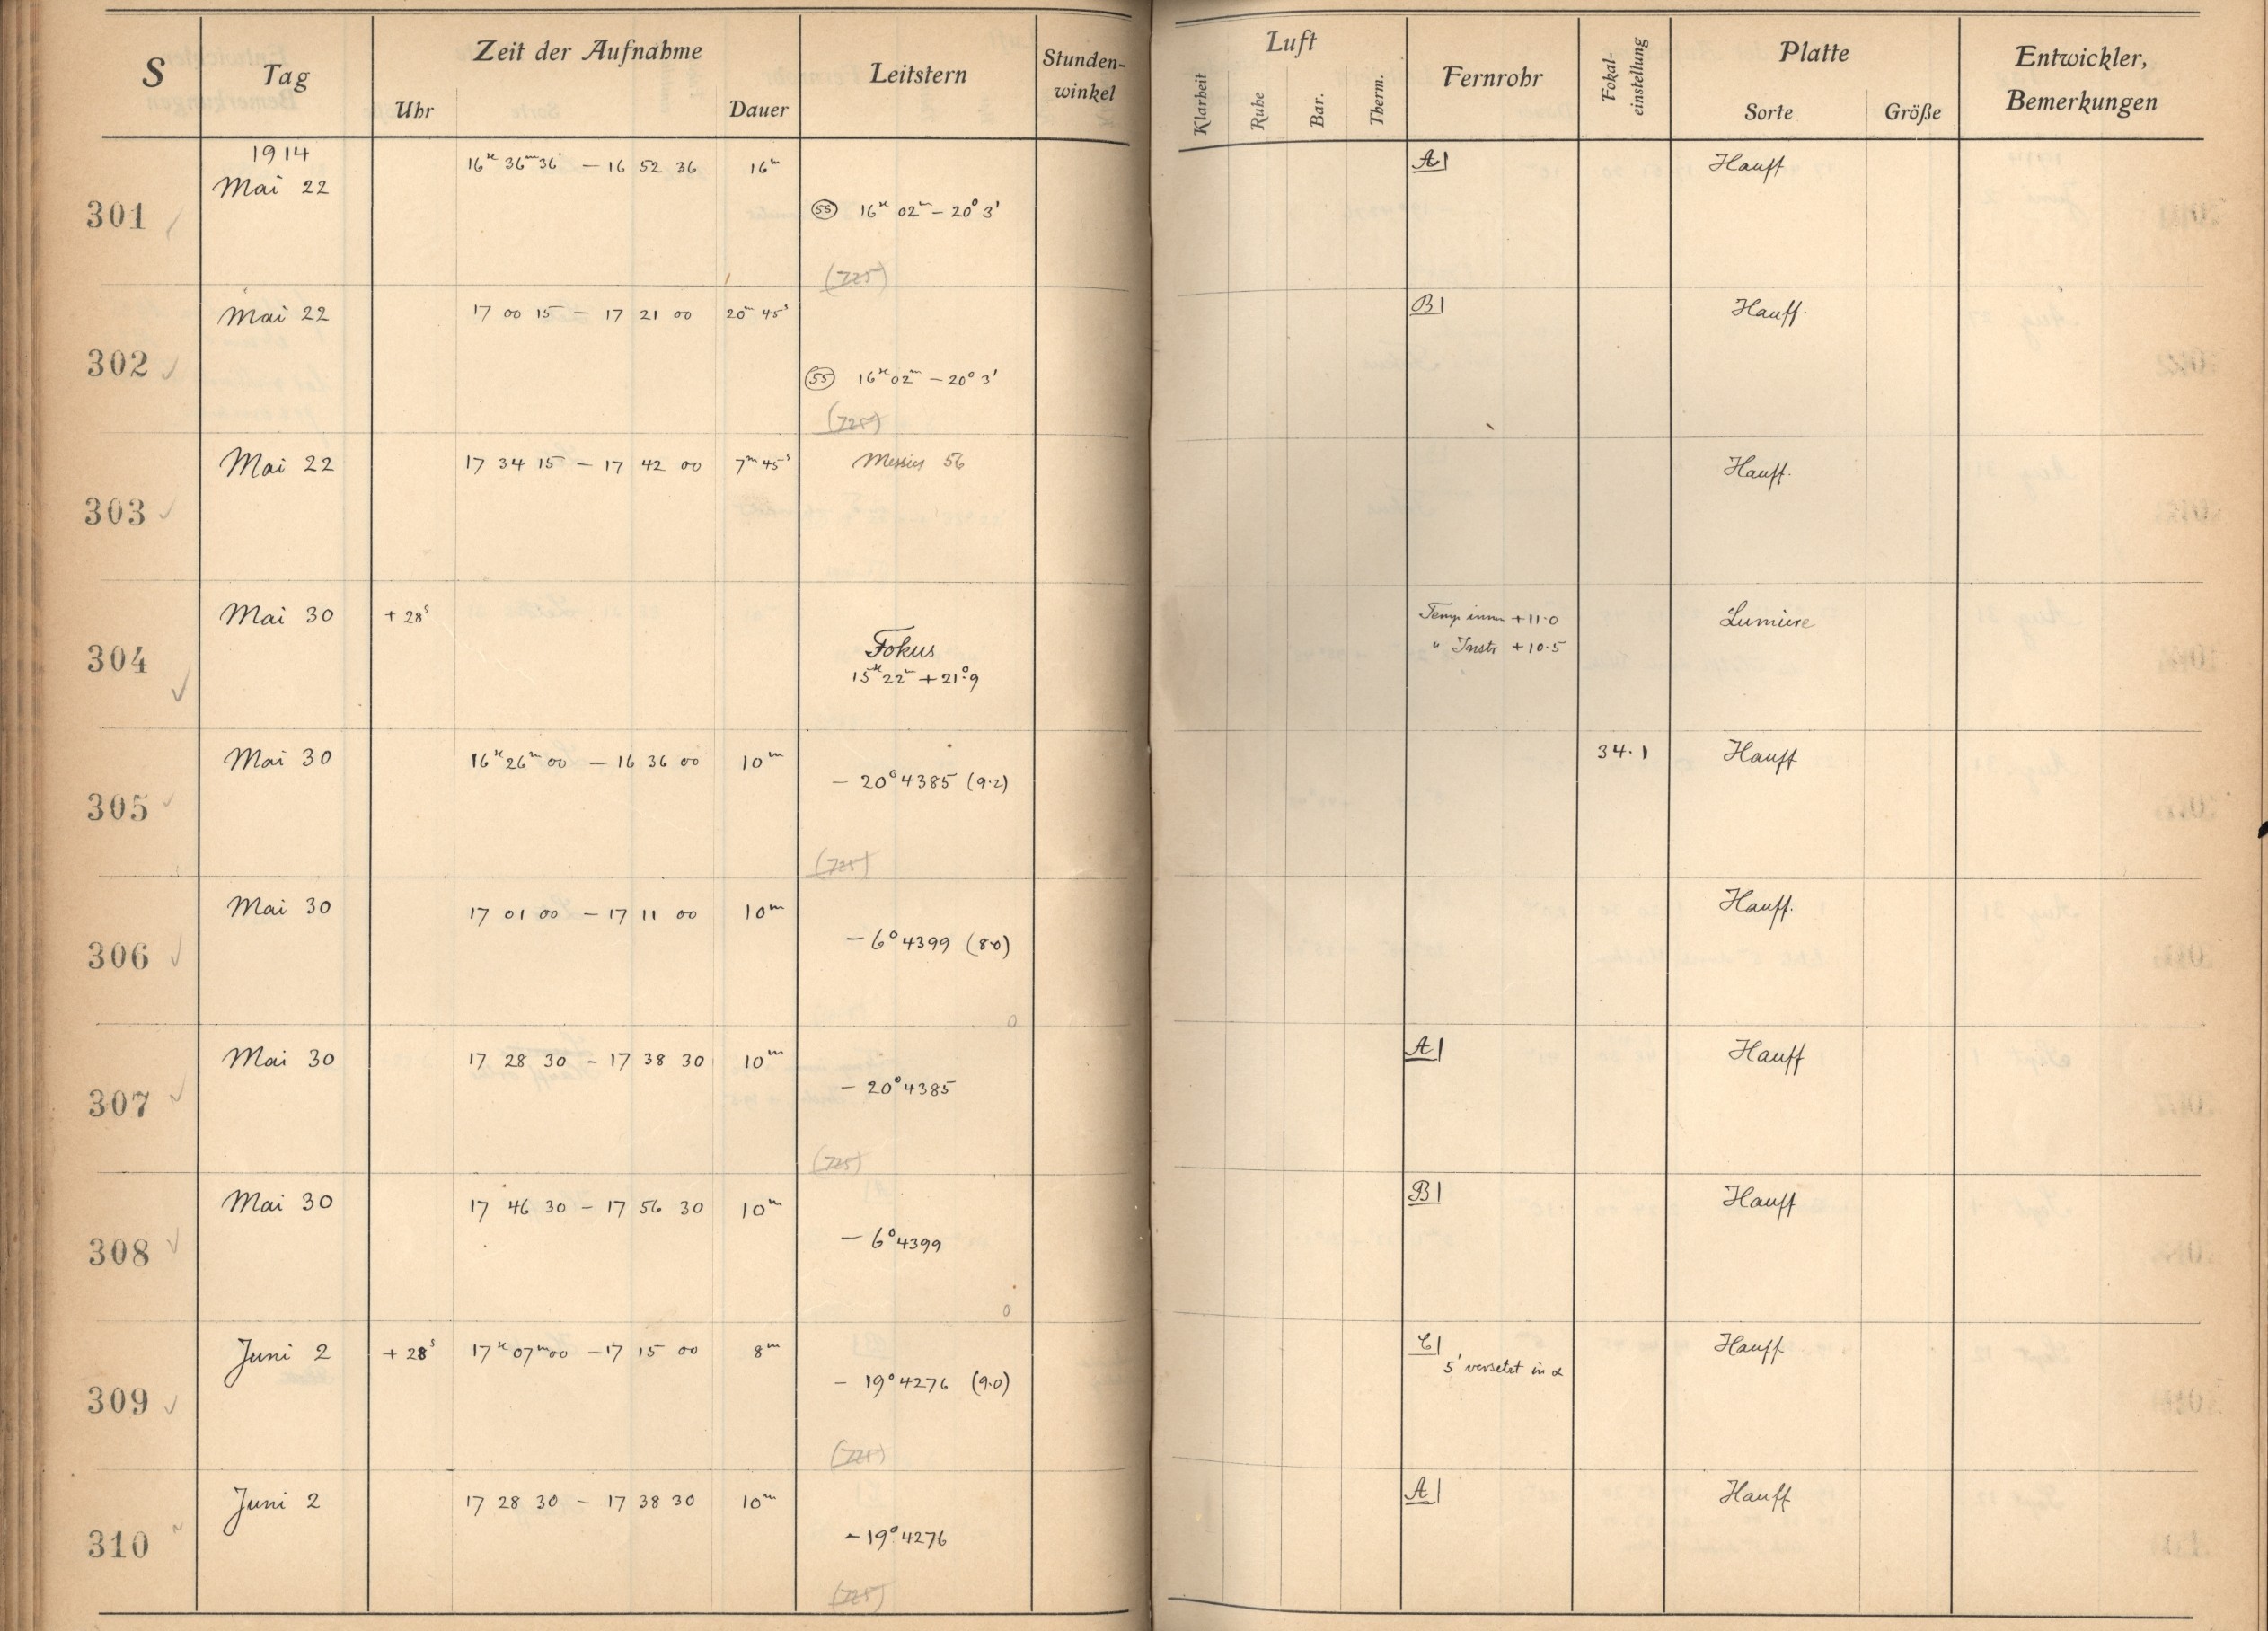 S Tag Zeit der Aufnahme Leitstern Stunden-winkel Luft Fernrohr Fokal-einstellung Platte Entwickler, Bemerkungen
Uhr Dauer Klarheit Ruhe Bar. Therm. Sorte Größe
1914
301 Mai 22 16h 36m 36s – 16 52 36 16m A| Hauff
(55) 16h 02m – 20° 3'
(725)
302 Mai 22 17 00 15 – 17 21 00 20m 45s B| Hauff.
(55) 16h 02m – 20° 3'
(725)
303 Mai 22 17 34 15 – 17 42 00 7m 45s Messier 56 Hauff.
304 Mai 30 + 28s Temp innen + 11·0 Lumière
Fokus " Instr + 10·5
15h 22m + 21°.9
305 Mai 30 16h 26m 00 – 16 36 00 10m 34.1 Hauff
– 20° 4385 (9·2)
(725)
306 Mai 30 17 01 00 – 17 11 00 10m Hauff.
– 6° 4399 (8·0)
0
307 Mai 30 17 28 30 – 17 38 30 10m A| Hauff
– 20° 4385
(725)
308 Mai 30 17 46 30 – 17 56 30 10m B| Hauff
– 6° 4399
0
309 Juni 2 + 28s 17h 07m 00 – 17 15 00 8m C| Hauff
5' versetzt in α
– 19° 4276 (9·0)
(725)
310 Juni 2 17 28 30 – 17 38 30 10m A| Hauff
– 19° 4276
(725)